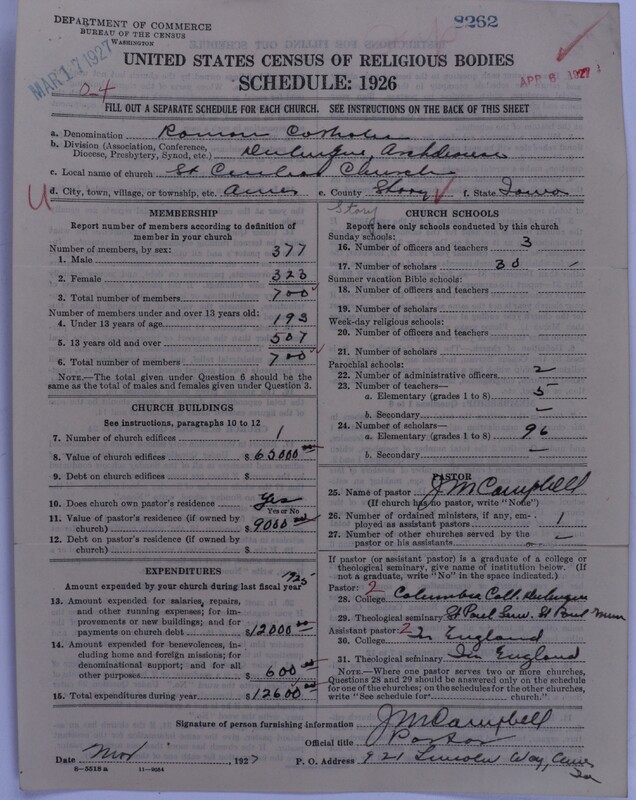 DEPARTMENT OF COMMERCE
BUREAU OF THE CENSUS
WASHINGTON
8262
MAR 17 1927
APR 8 1927
0-4
UNITED STATES CENSUS OF RELIGIOUS BODIES
SCHEDULE: 1926
FILL OUT A SEPARATE SCHEDULE FOR EACH CHURCH. SEE INSTRUCTIONS ON THE BACK OF THIS SHEET
a. Denomination Roman Catholic
b. Division (Association, Conference,
Diocese, Presbytery, Synod, etc.) Dubuque, Archdiocese
c. Local name of church St Cecilias Church
U d. City, town, village, or township, etc. Ames e. County Story f. State Iowa
Story
MEMBERSHIP
Report number of members according to definition of
member in your church
Number of members, by sex:
1. Male 377
2. Female 323
3. Total number of members 700
Number of members under and over 13 years old:
4. Under 13 years of age 193
5. 13 years old and over 507
6. Total number of members 700
NOTE.—The total given under Question 6 should be the
same as the total of males and females given under Question 3.
CHURCH BUILDINGS
See instructions, paragraphs 10 to 12
7. Number of church edifices 1
8. Value of church edifices $ 65000 00
9. Debt on church edifices $
10. Does church own pastor's residence Yes
Yes or No
11. Value of pastor's residence (if owned by
church) $ 9000 00
12. Debt on pastor's residence (if owned by
church) $
EXPENDITURES
Amount expended by your church during last fiscal year 1925
13. Amount expended for salaries, repairs,
and other running expenses; for im-
provements or new buildings; and for
payments on church debt $ 12000 00
14. Amount expended for benevolences, in-
cluding home and foreign missions; for
denominational support; and for all
other purposes $ 600 00
15. Total expenditures during year $ 12600 00
CHURCH SCHOOLS
Report here only schools conducted by this church
Sunday schools:
16. Number of officers and teachers 3
17. Number of scholars 30 –
Summer vacation Bible schools:
18. Number of officers and teachers
19. Number of scholars
Week-day religious schools:
20. Number of officers and teachers
21. Number of scholars
Parochial schools:
22. Number of administrative officers 2
23. Number of teachers—
a. Elementary (grades 1 to 8) 5
b. Secondary –
24. Number of scholars—
a. Elementary (grades 1 to 8) 96
b. Secondary –
PASTOR
25. Name of pastor J M Campbell
(If church has no pastor, write "None")
26. Number of ordained ministers, if any, em-
ployed as assistant pastors 1
27. Number of other churches served by the
pastor or his assistants –
If pastor (or assistant pastor) is a graduate of a college or
theological seminary, give name of institution below. (If
not a graduate, write "No" in the space indicated.)
Pastor: 2
28. College Columbia Coll. Dubuque
29. Theological seminary St Paul Sem. St Paul Minn
Assistant pastor: 2
30. College In England
31. Theological seminary In England
NOTE.—Where one pastor serves two or more churches,
Questions 28 and 29 should be answered only on the schedule
for one of the churches; on the schedules for the other churches,
write "See schedule for church."
Signature of person furnishing information J M Campbell
Official title Pastor
Date Mar , 1927 P. O. Address 921 Lincoln Way, Ames
Ia
8—5518 a 11—9554